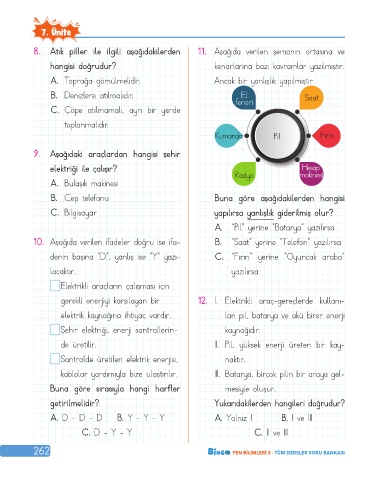 7. Ünite
8. Atık piller ile ilgili aşağıdakilerden
hangisi doğrudur?
A. Toprağa gömülmelidir.
B. Denizlere atılmalıdır.
C. Çöpe atılmamalı, ayrı bir yerde
toplanmalıdır.
9. Aşağıdaki araçlardan hangisi şehir
elektriği ile çalışır?
A. Bulaşık makinesi
B. Cep telefonu
C. Bilgisayar
10. Aşağıda verilen ifadeler doğru ise ifa-
denin başına "D", yanlış ise "Y" yazı-
lacaktır.
Elektrikli araçların çalışması için
gerekli enerjiyi karşılayan bir
elektrik kaynağına ihtiyaç vardır.
Şehir elektriği, enerji santrallerin-
de üretilir.
Santralde üretilen elektrik enerjisi,
kablolar yardımıyla bize ulaştırılır.
Buna göre sırasıyla hangi harfler
getirilmelidir?
A. D - D - D B. Y - Y - Y
C. D - Y - Y
11. Aşağıda verilen şemanın ortasına ve
kenarlarına bazı kavramlar yazılmıştır.
Ancak bir yanlışlık yapılmıştır.
El
feneri
Saat
Kumanda
Pil
Fırın
Radyo
Hesap
makinesi
Buna göre aşağıdakilerden hangisi
yapılırsa yanlışlık giderilmiş olur?
A. "Pil" yerine "Batarya" yazılırsa
B. "Saat" yerine "Telefon" yazılırsa
C. "Fırın" yerine "Oyuncak araba"
yazılırsa
12. I. Elektrikli araç-gereçlerde kullanı-
lan pil, batarya ve akü birer enerji
kaynağıdır.
II. Pil, yüksek enerji üreten bir kay-
naktır.
III. Batarya, birçok pilin bir araya gel-
mesiyle oluşur.
Yukarıdakilerden hangileri doğrudur?
A. Yalnız I B. I ve III
C. II ve III
262
BiNGO FEN BİLİMLERİ 3 - TÜM DERSLER SORU BANKASI